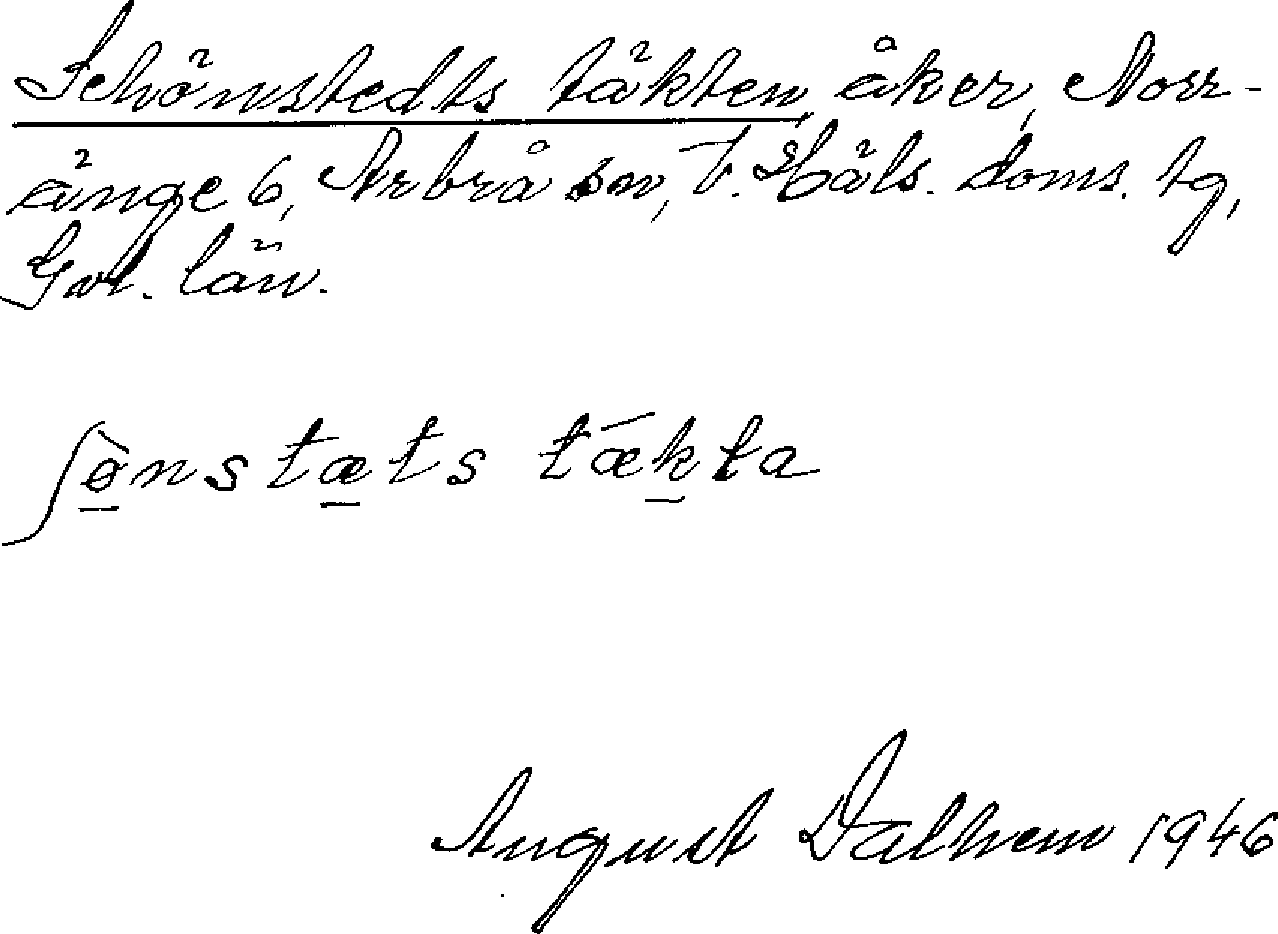 Schönstedts täkten, åker, Norr-
änge 6, Arbrå sn, V. Häls. doms. tg,
Gvl. län.
ʃø̀nstæts tǽkta
August Dalhem 1946